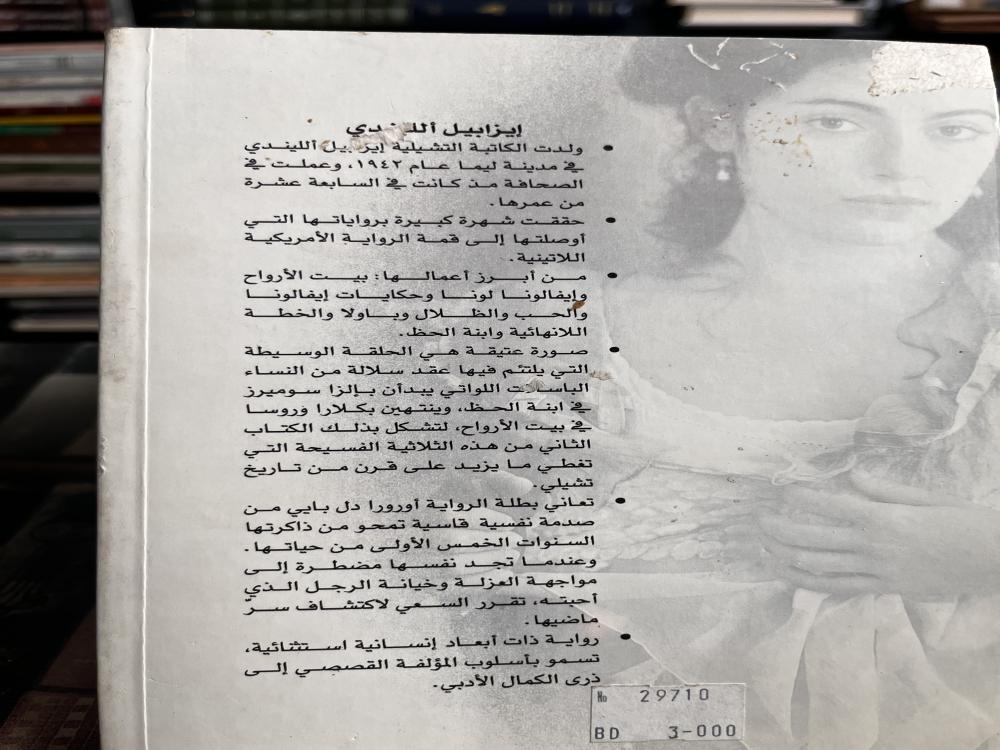 إيزابيل الليندي
• ولدت الكاتبة التشيلية إيزابيل الليندي
في مدينة ليما عام ١٩٤٢، وعملت في
الصحافة مذ كانت في السابعة عشرة
من عمرها.
• حققت شهرة كبيرة برواياتها التي
أوصلتها إلى قمة الرواية الأمريكية
اللاتينية.
• من أبرز أعمالها: بيت الأرواح
وإيفالونا لونا وحكايات إيفالونا
والحب والظلال وباولا والخطة
اللانهائية وابنة الحظ.
• صورة عتيقة هي الحلقة الوسيطة
التي يلتئم فيها عقد سلالة من النساء
الباسلات اللواتي يبدأن بإلزا سوميرز
في ابنة الحظ، وينتهين بكلارا وروسا
في بيت الأرواح، لتشكل بذلك الكتاب
الثاني من هذه الثلاثية الفسيحة التي
تغطي ما يزيد على قرن من تاريخ
تشيلي.
• تعاني بطلة الرواية أورورا دل بايي من
صدمة نفسية قاسية تمحو من ذاكرتها
السنوات الخمس الأولى من حياتها.
وعندما تجد نفسها مضطرة إلى
مواجهة العزلة وخيانة الرجل الذي
أحبته، تقرر السعي لاكتشاف سرّ
ماضيها.
• رواية ذات أبعاد إنسانية استثنائية،
تسمو بأسلوب المؤلفة القصصي إلى
ذرى الكمال الأدبي.
№ 29710
BD 3-000